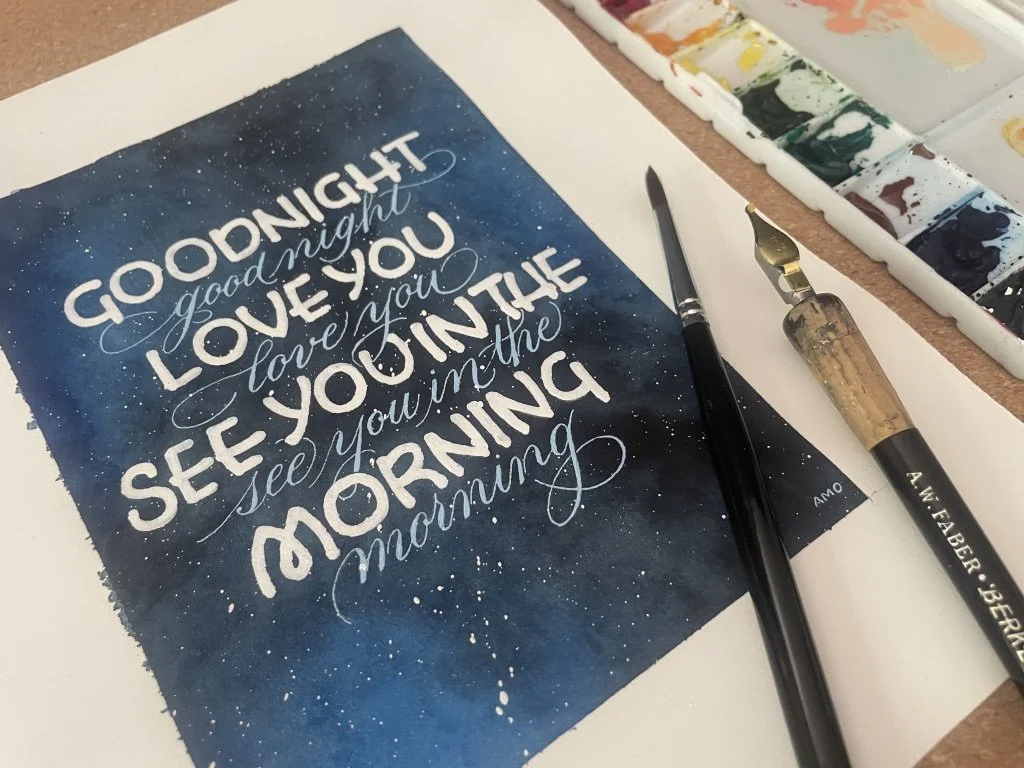 GOODNIGHT
goodnight
LOVE YOU
love you
SEE YOU IN THE
see you in the
MORNING
morning
AMO
A.W. FABER • BERKE